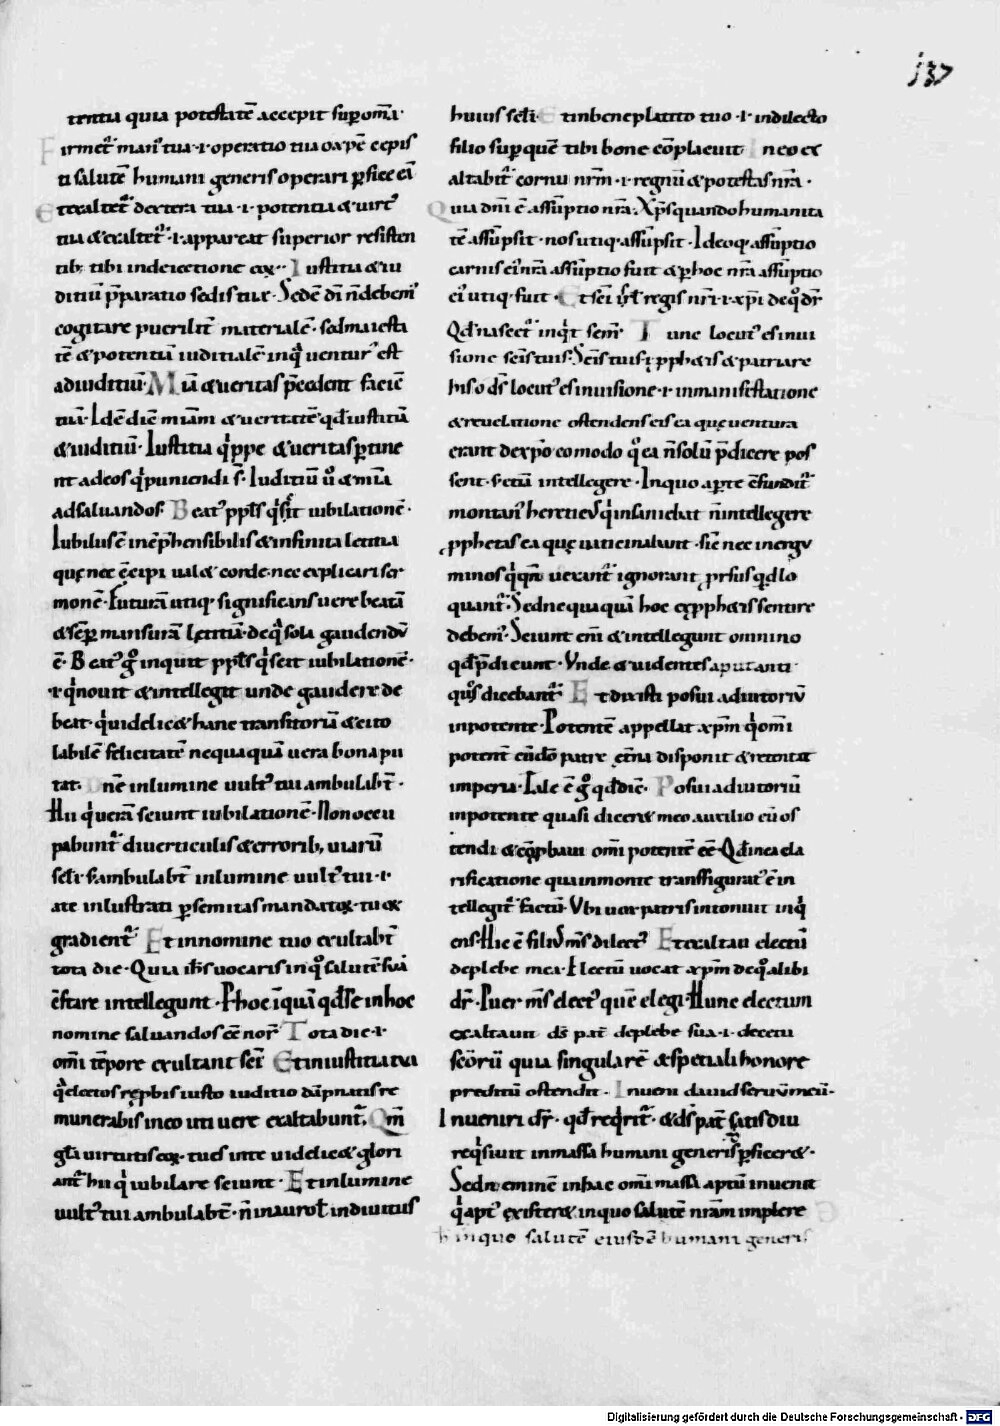 137
tentia quia potestatē accepit sup omia·
Firmet᷑ man᷒ tua·i·operatio tua
ti salutē humani generis operari
Et exaltet᷑ dextera tua·i·potentia & uirt᷒
tua & exaltet᷑·i·appareat superior resisten
tib; tibi indeiectione eoꝝ· Iustitia & iu
ditiū p̄paratio sedis tuę· Sedē dī n̄ debem᷒
cogitare puerilit̄ materialē· sed maiesta
tē & potentiā iuditialē inq̄ uentur᷒ est
adiuditiū· Mīa & ueritas p̄cedent faciē
tuā· Idē dic̄ miām & ueritatē qd̄ iustitiā
& iuditiū· Iustitia qippe & ueritas ptine
nt adeos q puniendi s̄· Iuditiū u & mīa
adsaluandos· Beat᷒ ppls qscit iubilationē·
Iubilus ē inēp̄hensibilis & infinita letitia
quę nec cēipi ual& corde·nec explicari ser
monē· Futurā utiq· significans uere beatā
& semp mansurā lętitiā· deq sola gaudendū
ē· Beat᷒ g inquit ppls qscit iubilationē·
·i·qnouit & intellegit unde gaudere de
beat· quidelic& hanc transitoriā & cito
labilē felicitatē nequaquā uera bona pu
tat· Dn̄e inlumine uult᷒ tui ambulabt̄·
Hii qi uerā sciunt iubilationē· Non occu
pabunt᷑ diuerticulis & errorib; uiarū
scl̄i· s; ambulabt̄ inlumine uult᷒ tui·i·
a te inlustrati p semitas mandatoꝝ·tuoꝝ
gradient᷑· Et innomine tuo exultabt̄
tota die· Quia ih̄s uocaris in q salutē suā
ēstare intellegunt· Phoc
nomine saluandos eē nor̄ Tota die·i·
omī tēpore exultant ser̄ Et in iustitia tua
q electos rępbis iusto iuditio dāpnatis re
munerabis in eo uti uere exaltabunt᷑· Qm̄
gla uirtutis eoꝝ·tu es in te uidelic& glori
ant᷑ hii q iubilare sciunt· Et inlumine
uult᷒ tui ambulabt̄· n̄ in auro ut̄ in diuitiis
huius scl̄i· Et inbeneplacito tuo·i·indilecto
filio sup quē tibi bene cōplacuit In eo ex
altabit᷑ cornu nr̄m·i·regnū & potestas nr̄a·
Quia dn̄i ē assūptio nr̄a· Xp̄s quando humanita
tē assūpsit·nos utiq· assūpsit· Ideoq· assūptio
carnis ei᷒ nr̄a assūptio fuit & p hoc nr̄a assūptio
ei᷒ utiq· fuit· Et sc̄i isrl̄ regis nr̄i·i·xp̄i deq dr̄·
Qd̄ nascet᷑ inqt sem̄· Tunc locut᷒ es inui
sione sc̄is tuis· Sc̄is tuis·i·pph&is & patriarc
his o ds̄ locut᷒ es in uisione·i·inmanifestatione
& reuelatione ostendens eis ea quę uentura
erant de xp̄o eo modo q ea n̄ solū p̄dicere pos
sent· s; etiā intellegere· In quo aperte cōfundit᷑
montan᷒ heretic᷒ q insaniebat n̄ intellegere
pphetas ea quę uaticinabant· sic̄ nec inergu
minos qqm̄ uexant᷑ ignorant prsus qd̄ lo
quant᷑· Sed nequaquā hoc exppheis sentire
debem᷒· Sciunt eni & intellegunt omnino
qd̄ p̄dicunt· Vnde & uidentes aputanti
quos dicebant᷑ Et dixisti posui adiutoriū
inpotente· Potentē appellat xp̄m q omi
potent̄ cū do patre ętna disponit & retentat
imperia· Tale ē g qd̄ dic̄· Posui adiutoriū
inpotente quasi dicer& meo auxilio eū os
tendi & cōpbaui omi potentē eē· Qd̄ in ea cla
rificatione qua inmonte transfigurat᷒ ē in
tellegit᷑ factū· Vbi uox patris intonuit inq
ens· Hic ē filius ms̄ dilect᷒ Et exaltaui electū
deplebe mea· Electū uocat xp̄m deq alibi
dr̄· Puer ms̄ elect᷒ quē elegi· Hunc electum
exaltauit ds̄ pat̄ deplebe sua·i·decetu
sc̄orū quia singularē & speciali honore
preditū ostendit· Inueni dauid seruū meū·
Inueniri dr̄· qd̄ reqrit᷑· & ds̄ pat̄ satis diu
reqsiuit inmassa humani generis pficer&·
Sed n̄ eminē in hac omi massa aptū inuenit
q apt᷒ existeret inquo salutē nr̄am implere
h̄ inquo salutē eiusdē humani generis
Digitalisierung gefördert durch die Deutsche Forschungsgemeinschaft - DFG